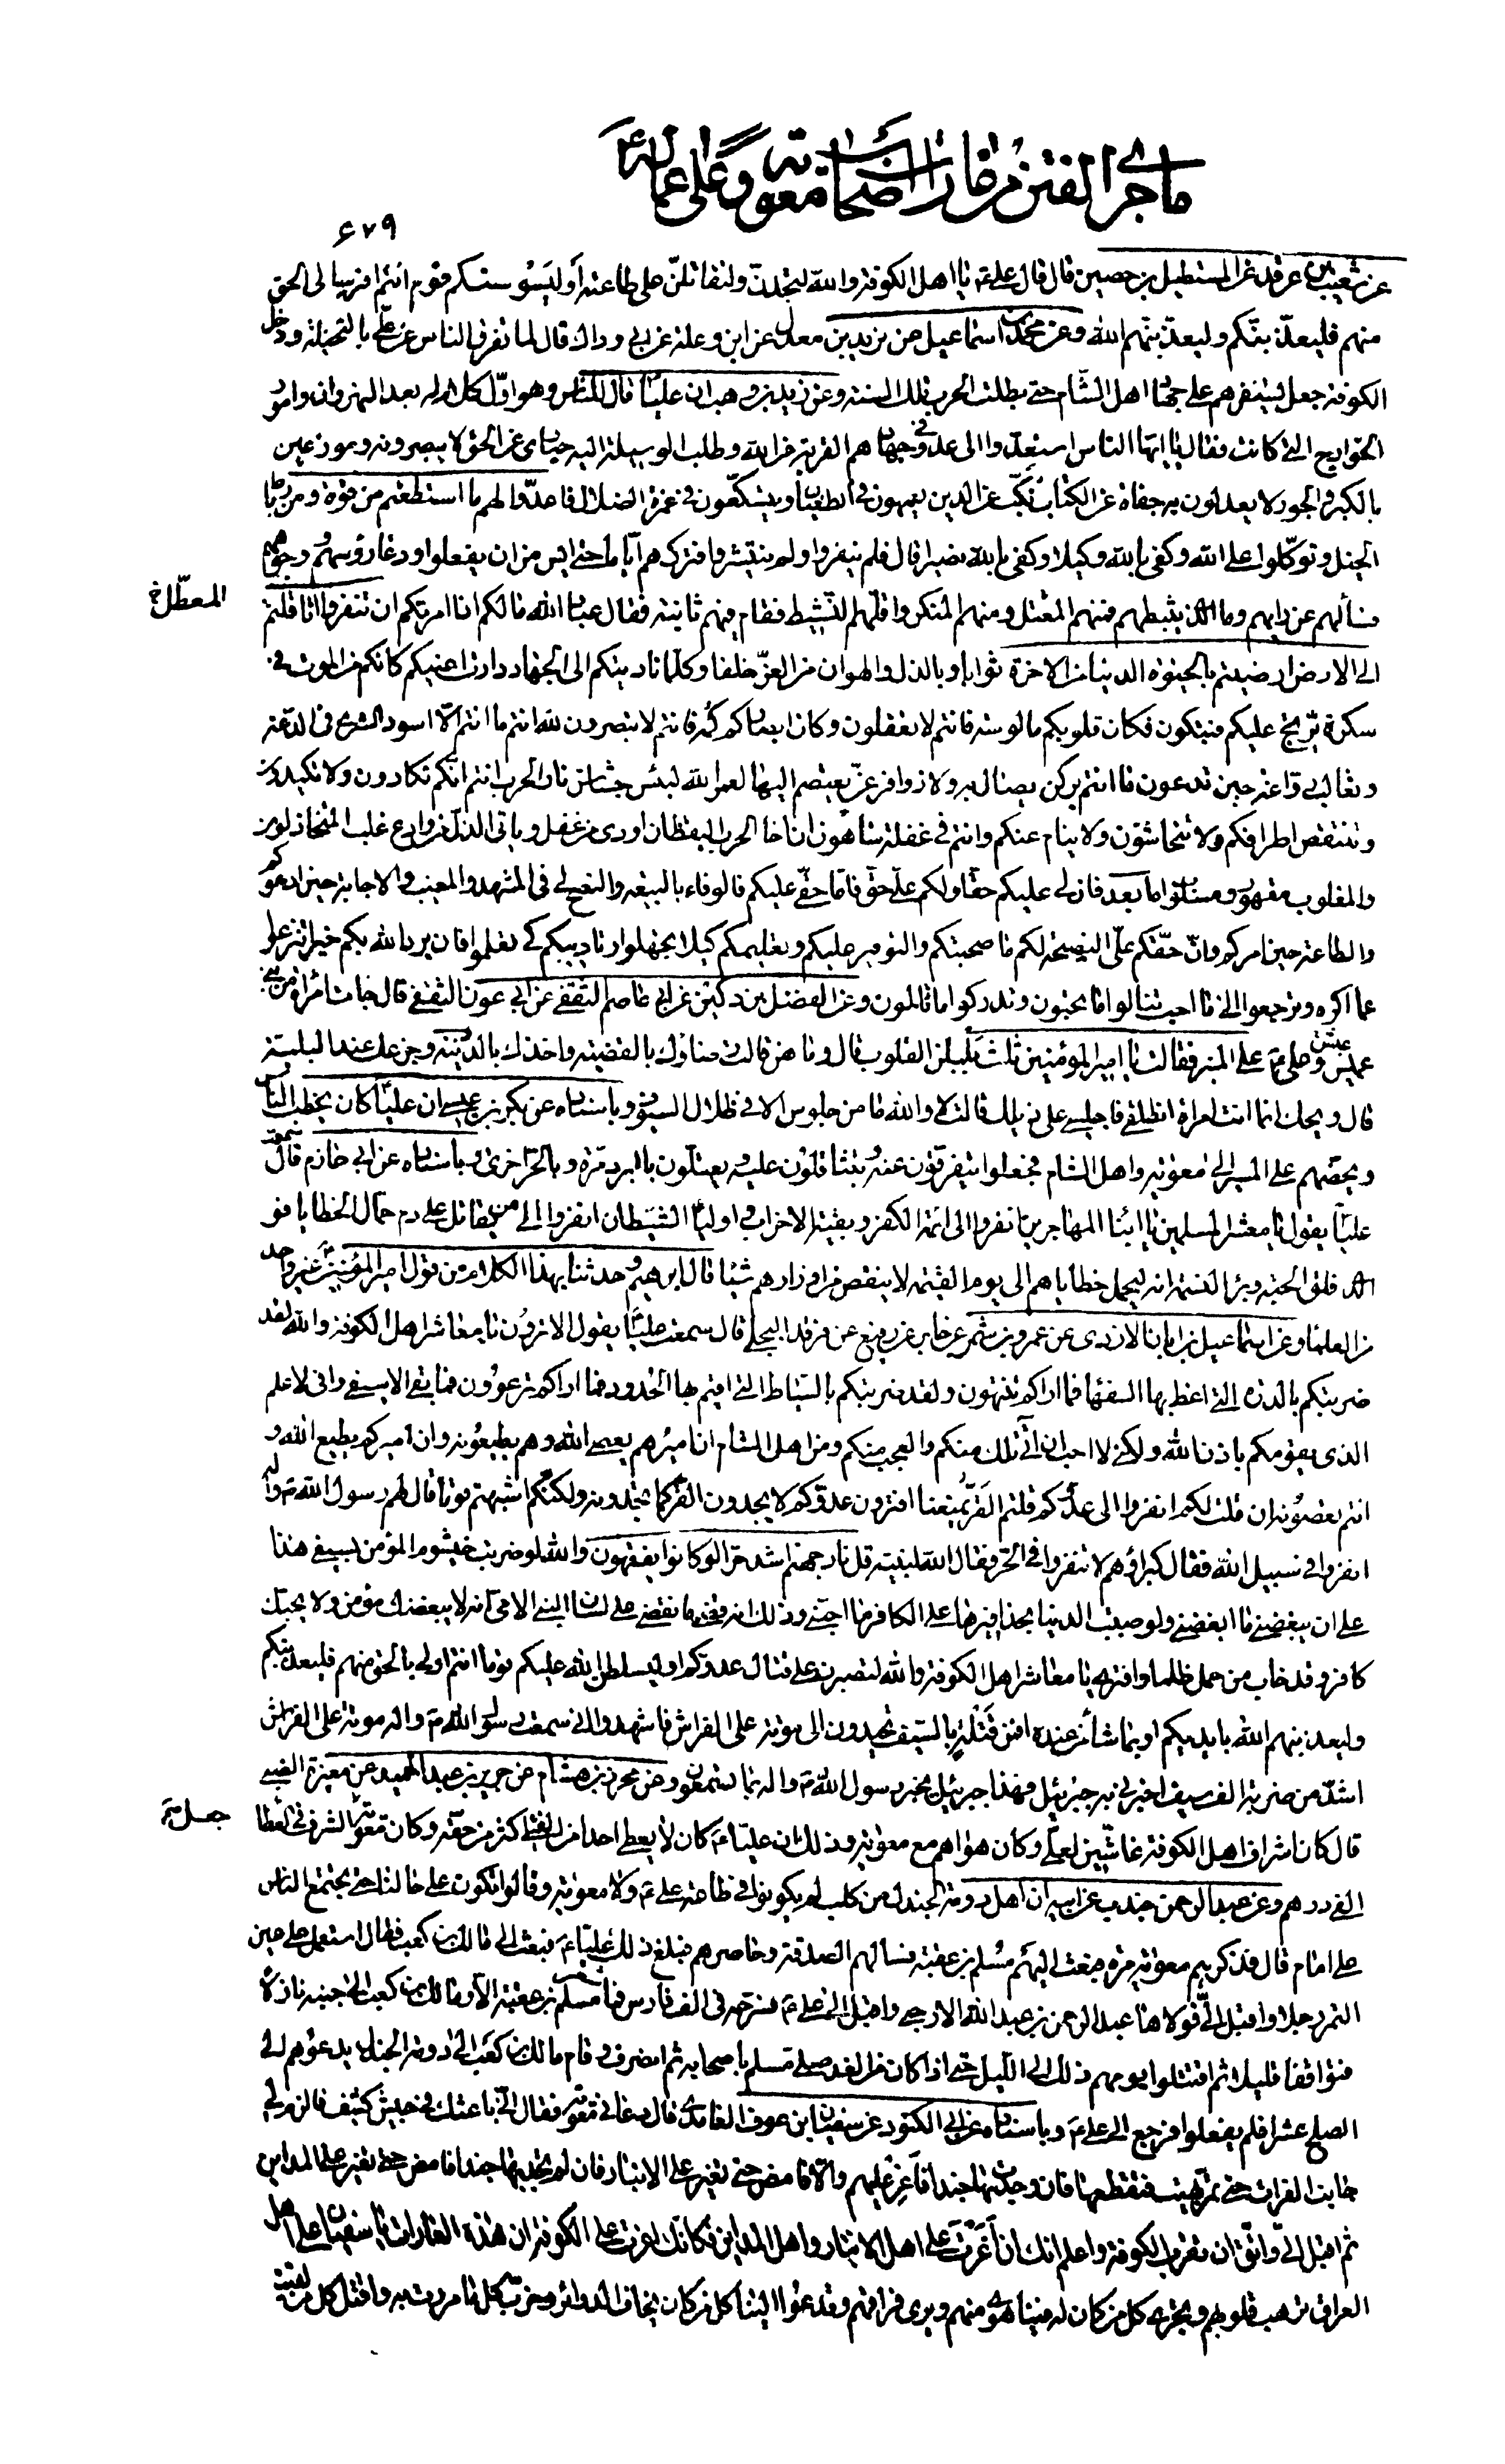 ما جرى الفتن من غارات اصحاب معوية على اعماله ع
۶۷۹
عن شعيب بن غرقد عن المستطيل بن حصين قال قال علي ع يا اهل الكوفة والله لتجدنّ ولتقاتلنّ على طاعته أو ليسوسنكم قوم انتم اقرب الى الحق
منهم فليعذّبنّكم وليعذّبنّهم الله وعن محمد بن اسماعيل عن يزيد بن معدل عن ابن وعلة عن ابي وداك قال لما تفرق الناس عن علي بالنخيلة ودخل
الكوفة جعل يستنفرهم على جهاد اهل الشام حتى بطلت الحرب تلك السنة وعن زيد بن وهب ان عليا قال للناس وهو اوّل كلام له بعد النهروان وامور
الخوارج التي كانت فقال يا ايها الناس استعدّوا الى عدو في جهادهم القربة من الله وطلب الوسيلة اليه حيارى عن الحق لا يبصرونه وموزعين
بالكبر والجور لا يعدلون به جفاة عن الكتاب نكّب عن الدين يعمهون في الطغيان ويتسكّعون في غمرة الضلال فاعدّوا لهم ما استطعتم من قوة ومن رباط
الخيل وتوكّلوا على الله وكفى بالله وكيلا وكفى بالله نصيرا قال فلم ينفروا ولم ينتشروا فتركهم اياما حتى ايس من ان يفعلوا ودعا رؤسهم ووجوههم
فسألهم عن رايهم وما الذي يثبطهم فمنهم المعتل ومنهم المنكر واقلهم النشيط فقام فيهم ثانية فقال عباد الله مالكم اذا امرتكم ان تنفروا اثاقلتم
المعطّل خ
الى الارض ارضيتم بالحيوة الدنيا من الاخرة ثوابا وبالذل والهوان من العزّ خلفا وكلما ناديتكم الى الجهاد دارت اعينكم كانكم من الموت في
سكرة يرتج عليكم فتبكون فكان قلوبكم مالوسة فانتم لا تعقلون وكان ابصاركم كمه فانتم لا تبصرون لله انتم ما انتم الا اسود الشرى في الدعة
وثعالب رواغة حين تدعون ما انتم بركن يصال به ولا زوافر عزّ يعتصم اليها لعمر الله لبئس حشاش نار الحرب انتم انكم تكادون ولا تكيدون
وتنتقص اطرافكم ولا تتحاشون ولا ينام عنكم وانتم في غفلة ساهون ان اخا الحرب اليقظان اودى من غفل وياتي الذل من وادع غلب المتخاذلون
والمغلوب مقهور ومسلوب اما بعد فان لي عليكم حقا ولكم علي حق فاما حقي عليكم فالوفاء بالبيعة والنصح لي في المشهد والمغيب والاجابة حين ادعوكم
والطاعة حين امركم وان حقكم علي النصيحة لكم ما صحبتكم والتوفير عليكم وتعليمكم كيلا تجهلوا وتاديبكم كي تعلموا فان يرد الله بكم خيرا تنزعوا
عما اكره وترجعوا الى ما احب تنالوا ما تحبون وتدركوا ما تاملون وعن الفضل بن دكين عن ابي عاصم الثقفي عن ابي عون الثقفي قال جاءت امرأة من بني
عبس وعلي ع على المنبر فقالت يا امير المؤمنين ثلث بلبلن القلوب قال وما هن قالت رضاؤك بالقضية واخذك بالدنية وجزعك عند البلية
قال ويحك انما انت امراة انطلقي فاجلسي على ذيلك قالت لا والله ما من جلوس الا في ظلال السيوف وباسناده عن بكر بن عيسى ان عليا كان يخطب الناس
ويحضهم على المسير الى معوية واهل الشام فجعلوا يتفرقون عنه ويتثاقلون عليه ويعتلون بالبرد مرة وبالحر اخرى وباسناده عن ابي حازم قال سمعت
عليا يقول يا معشر المسلمين يا ابناء المهاجرين انفروا الى ائمة الكفر وبقية الاحزاب واولياء الشيطان انفروا الى من يقاتل على دم حمال الخطايا فو
الذي فلق الحبة وبرا النسمة انه ليحمل خطاياهم الى يوم القيمة لا ينقص من اوزارهم شيئا قال ابرهيم وحدثنا بهذا الكلام من قول امير المؤمنين ع غير واحد
من العلماء وعن اسماعيل بن ابان الازدي عن عمرو بن شمر عن جابر عن رفيع عن فرقد البجلي قال سمعت عليا يقول الا ترون يا معاشر اهل الكوفة والله لقد
ضربتكم بالدرة التي اعظ بها السفهاء فما اراكم تنتهون ولقد ضربتكم بالسياط التي اقيم بها الحدود فما اراكم ترعوون فما بقي الا سيفي واني لاعلم
الذي يقومكم باذن الله ولكني لا احب ان آتي تلك منكم والعجب منكم ومن اهل الشام ان اميرهم يعصي الله وهم يطيعونه وان اميركم يطيع الله و
انتم تعصونه ان قلت لكم انفروا الى عدوكم قلتم القرّ يمنعنا افترون عدوكم لا يجدون القر كما تجدونه ولكنكم اشبهتم قوما قال لهم رسول الله ص واله
انفروا في سبيل الله فقال كبراؤهم لا تنفروا في الحر فقال الله لنبيه قل نار جهنم اشد حرا لو كانوا يفقهون والله لو ضربت خيشوم المؤمن بسيفي هذا
على ان يبغضني ما ابغضني ولو صببت الدنيا بحذافيرها على الكافر ما احبني وذلك انه قضى ما قضى على لسان النبي الامي انه لا يبغضك مؤمن ولا يحبك
كافر وقد خاب من حمل ظلما وافترى يا معاشر اهل الكوفة والله لتصبرن على قتال عدوكم او ليسلطن الله عليكم قوما انتم اولى بالحق منهم فليعذبنكم
وليعذبنهم الله بايديكم او بما شاء من عنده افمن قتلة بالسيف تحيدون الى موتة على الفراش فاشهدوا اني سمعت رسول الله ص واله موتة على الفراش
اشدّ من ضربة الف سيف اخبرني به جبرئيل فهذا جبرئيل يخبر رسول الله ص واله بما تسمعون وعن محرز بن هشام عن جرير بن عبد الحميد عن مغيرة الضبي
قال كان اشراف اهل الكوفة غاشّين لعلي وكان هواهم مع معوية وذلك ان عليا ع كان لا يعطي احدا من الفيء اكثر من حقه وكان معوية جعل الشرف في العطا
جعل ية
الفي درهم وعن عبد الرحمن جندب عن ابيه ان اهل دومة الجندل من كلب لم يكونوا في طاعة علي ع ولا معوية وقالوا نكون على حالنا حتى يجتمع الناس
على امام قال فذكرهم معوية مرة فبعث اليهم مسلم بن عقبة فسالهم الصدقة وحاصرهم فبلغ ذلك عليا ع فبعث الى مالك بن كعب فقال استعمل على عين
التمر رجلا واقبل اليّ فولاها عبد الرحمن بن عبد الله الارحبي واقبل الى علي ع فسرحه في الف فارس فما شعر مسلم بن عقبة الا ومالك بن كعب الى جنبه نازلا
فتواقفا قليلا ثم اقتتلوا يومهم ذلك الى الليل حتى اذا كان من الغد صلى مسلم باصحابه ثم انصرف وقام مالك بن كعب الى دومة الجندل يدعوهم الى
الصلح عشرا فلم يفعلوا فرجع الى علي ع وباسناده عن ابي الكنود عن سفيان ابن عوف الغامدي قال دعاني معوية فقال اني باعثك في جيش كثيف فالزم لي
جانب الفرات حتى تمر بهيت فتقطعها فان وجدت بها جندا فأغر عليهم والا فامض حتى تغير على الانبار فان لم تجد بها جندا فامض حتى تغير على المداين
ثم اقبل اليّ واتق ان تقرب الكوفة واعلم انك ان أغرت على اهل الانبار واهل المداين فكانك اغرت على الكوفة ان هذه الغارات يا سفيان على اهل
العراق ترهب قلوبهم وتجرى كل من كان له فينا هوى منهم ويرى فراقهم وتدعوا الينا كل من كان يخاف الدوائر وخرّب كل ما مررت به واقتل كل من لقيت